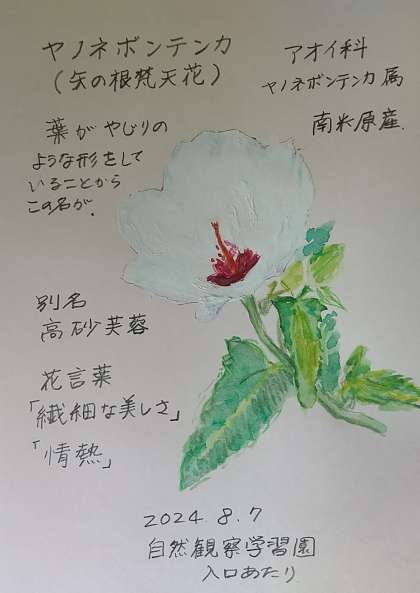 ヤノネボンテンカ
(矢の根梵天花)
アオイ科
ヤノネボンテンカ属
南米原産.
葉がやじりの
ような形をして
いることから
この名が.
別名
高砂芙蓉
花言葉
「繊細な美しさ」
「情熱」
2024.8.7
自然観察学習園
入口あたり